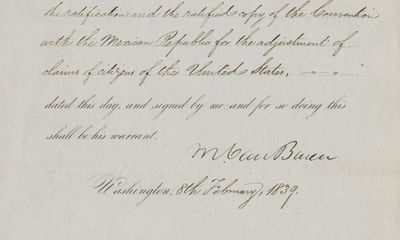 the ratification and the ratified copy of the Convention
with the Mexican Republic for the adjustment of
claims of citizens of the United States, — " — " —
dated this day, and signed by me and for so doing this
shall be his warrant.
M. Van Buren
Washington, 8th February, 1839.